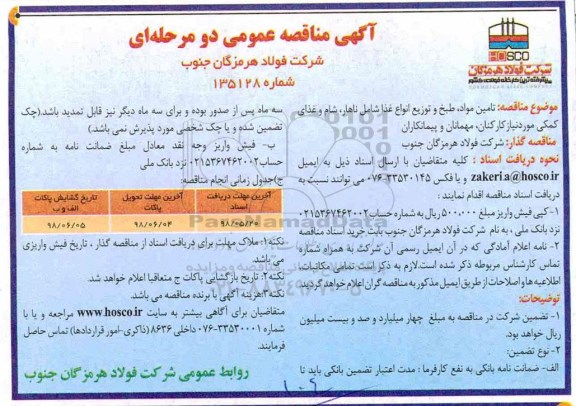 آگهی مناقصه عمومی دو مرحله‌ای
شرکت فولاد هرمزگان جنوب
شماره ۱۳۵۱۲۸
HOSCO
شرکت فولاد هرمزگان
موضوع مناقصه: تامین مواد، طبخ و توزیع انواع غذا شامل ناهار، شام و غذای
کمکی موردنیاز کارکنان، مهمانان و پیمانکاران
مناقصه گذار: شرکت فولاد هرمزگان جنوب
نحوه دریافت اسناد : کلیه متقاضیان با ارسال اسناد ذیل به ایمیل
zakeri.a@hosco.ir و یا فکس ۳۳۵۳۰۱۴۵-۰۷۶ می توانند نسبت به
دریافت اسناد مناقصه اقدام نمایند :
۱- کپی فیش واریز مبلغ ۵۰۰،۰۰۰ ریال به شماره حساب ۰۲۱۵۳۶۷۴۶۲۰۰۲
نزد بانک ملی ، به نام شرکت فولاد هرمزگان جنوب بابت خرید اسناد مناقصه
۲- نامه اعلام آمادگی که در آن ایمیل رسمی آن شرکت به همراه شماره
تماس کارشناس مربوطه ذکر شده است. لازم به ذکر است تمامی مکاتبات،
اطلاعیه ها و اصلاحات از طریق ایمیل مذکور به مناقصه گران اعلام خواهد گردید
توضیحات:
۱- تضمین شرکت در مناقصه به مبلغ چهار میلیارد و صد و بیست میلیون
ریال خواهد بود.
۲- نوع تضمین:
الف- ضمانت نامه بانکی به نفع کارفرما : مدت اعتبار تضمین بانکی باید تا
سه ماه پس از صدور بوده و برای سه ماه دیگر نیز قابل تمدید باشد.(چک
تضمین شده و یا چک شخصی مورد پذیرش نمی باشد.)
ب- فیش واریز وجه نقد معادل مبلغ ضمانت نامه به شماره
حساب ۰۲۱۵۳۶۷۴۶۲۰۰۲ نزد بانک ملی
ج) جدول زمانی انجام مناقصه:
آخرین مهلت دریافت اسناد
آخرین مهلت تحویل پاکات
تاریخ گشایش پاکات الف و ب
۹۸/۰۵/۲۰
۹۸/۰۶/۰۴
۹۸/۰۶/۰۵
نکته۱: ملاک مهلت برای دریافت اسناد از مناقصه گذار ، تاریخ فیش واریزی
می باشد.
نکته۲: تاریخ بازگشایی پاکات ج متعاقبا اعلام خواهد شد.
نکته۳: هزینه آگهی با برنده مناقصه می باشد.
متقاضیان برای آگاهی بیشتر به سایت www.hosco.ir مراجعه و یا با
شماره ۳۳۵۳۰۰۰۱-۰۷۶ داخلی ۸۶۳۶ (ذاکری-امور قراردادها) تماس حاصل
فرمایند.
روابط عمومی شرکت فولاد هرمزگان جنوب